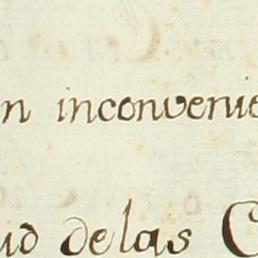 n inconvenie
ud delas C